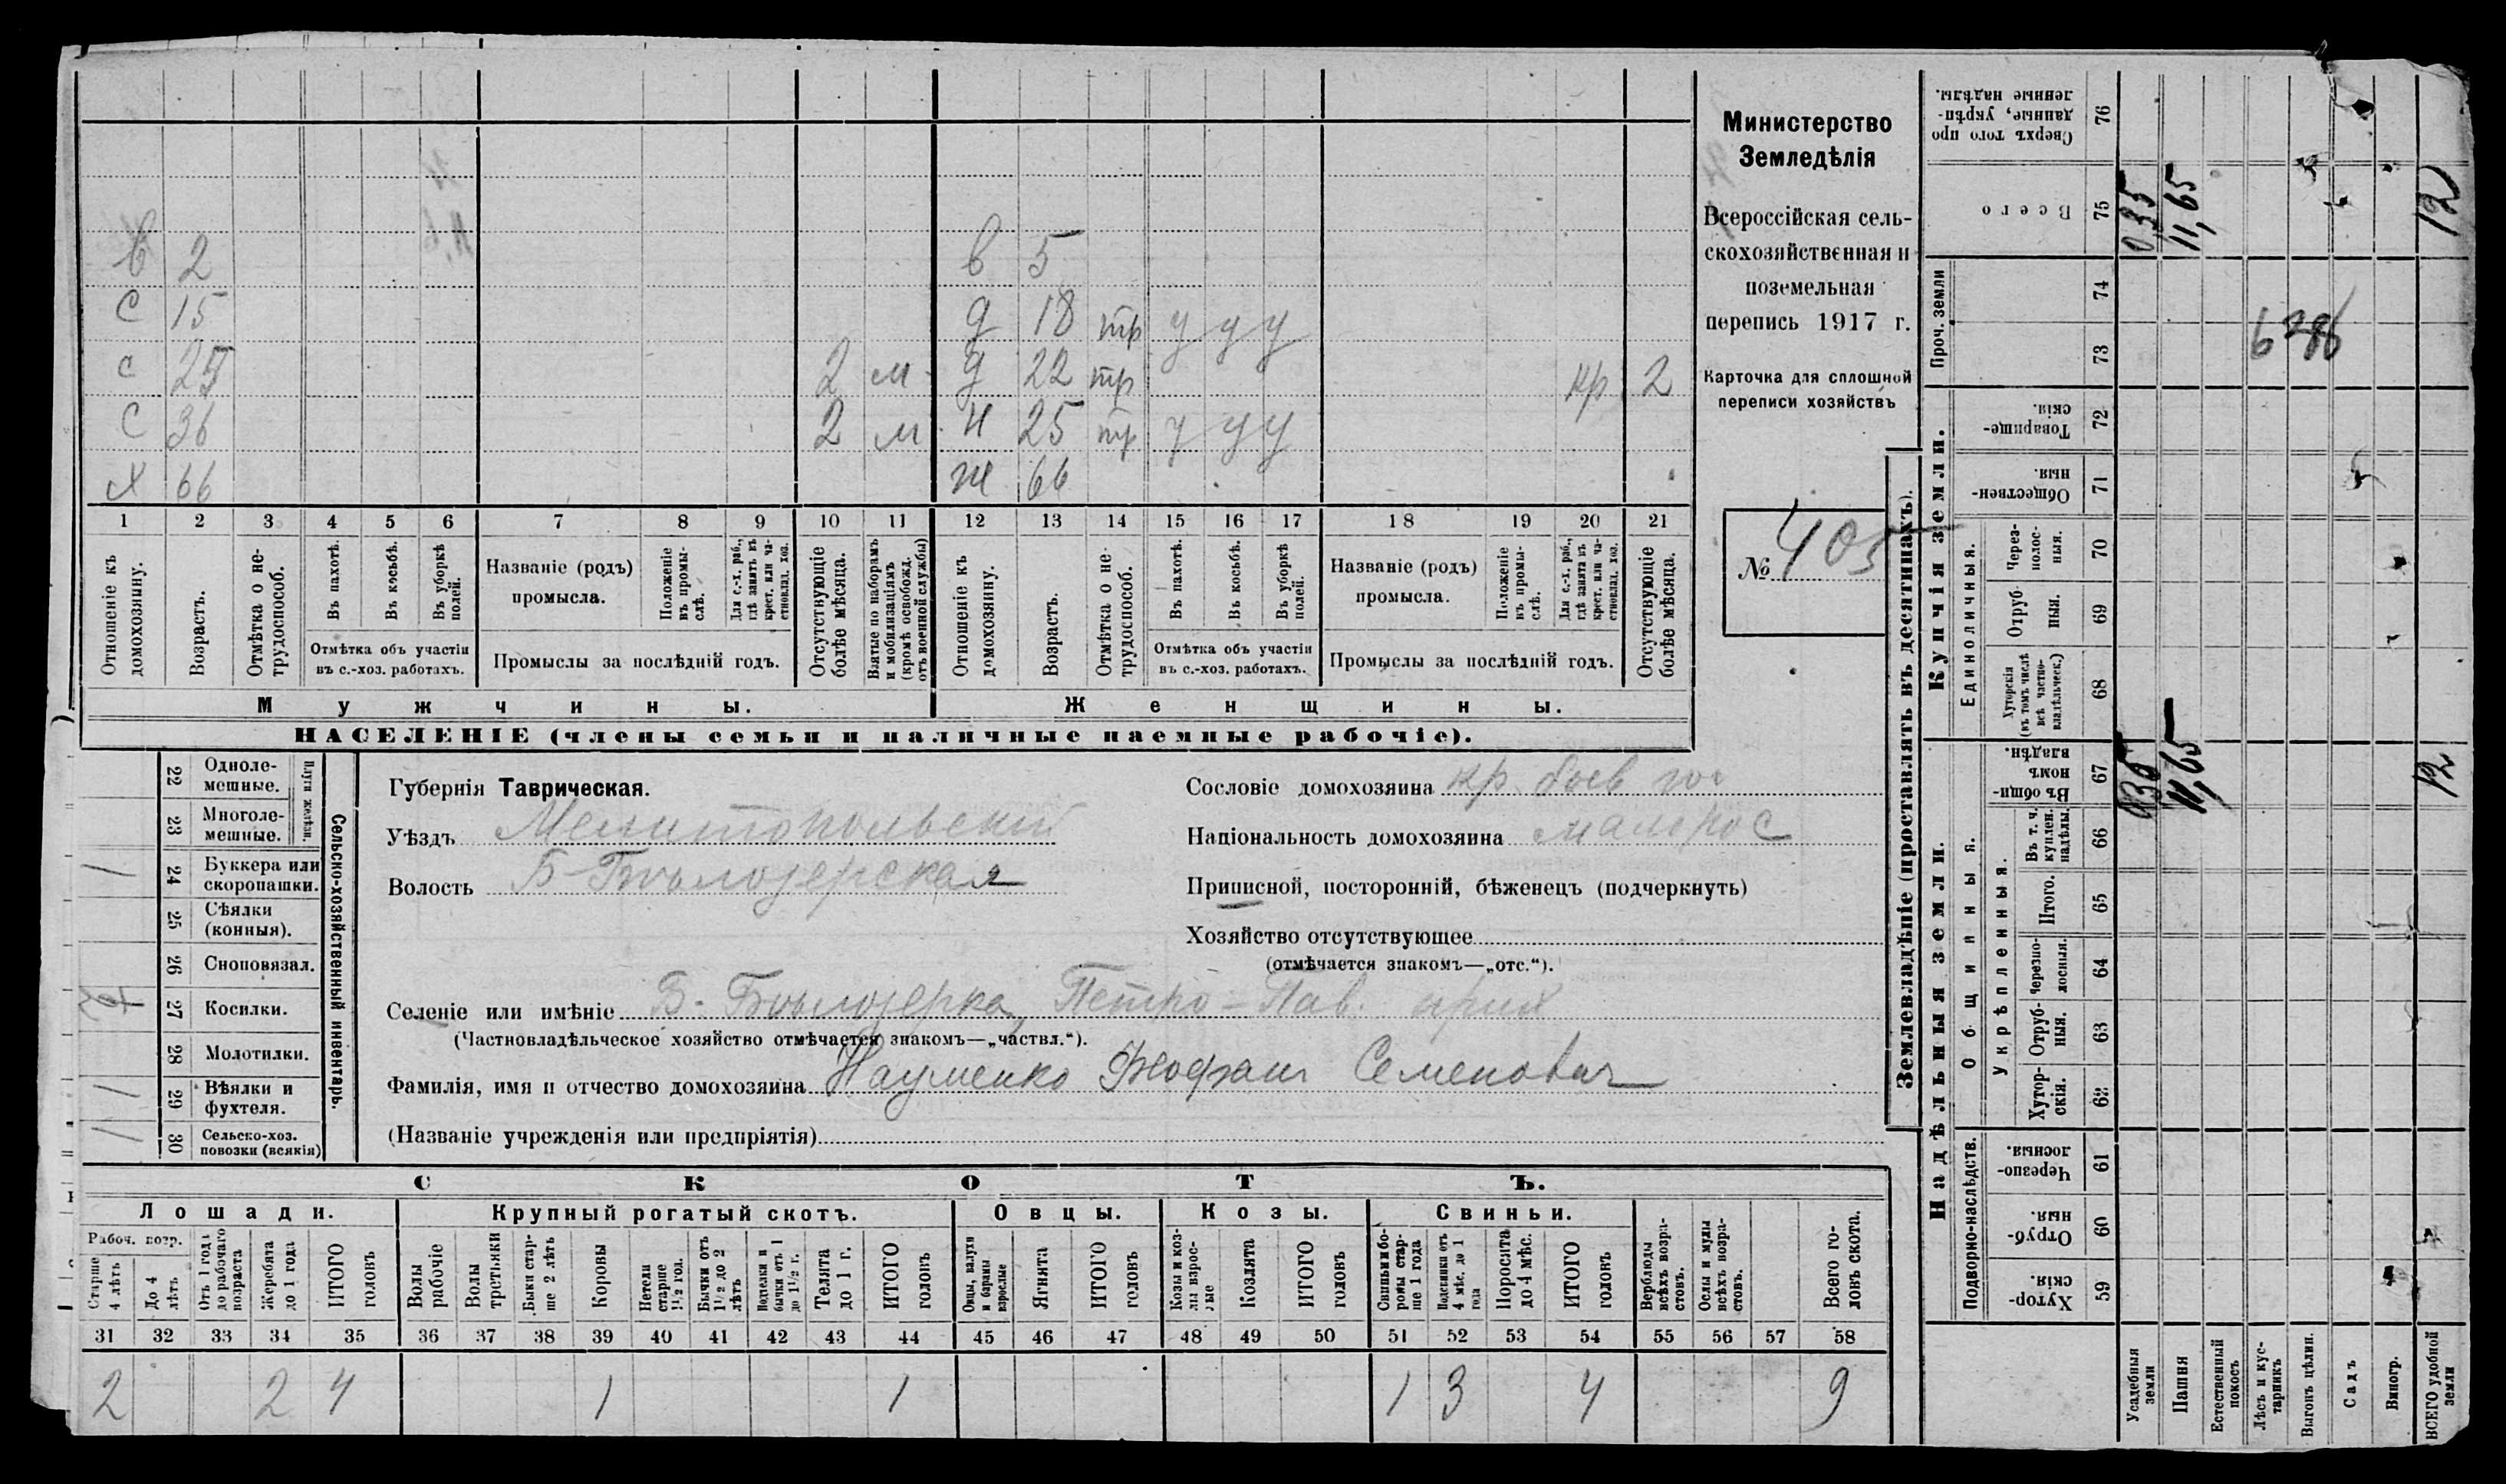 Министерство
Земледѣлія
Всероссійская сель-
скохозяйственная и
поземельная
перепись 1917 г.
Карточка для сплошной
переписи хозяйствъ
№ 405
в 2 в 5
с 15 д 18 тр у у у
с 25 2 м д 22 тр кр 2
с 36 2 м н 25 тр у у у
х 66 ж 66
1 2 3 4 5 6 7 8 9 10 11 12 13 14 15 16 17 18 19 20 21
Отношеніе къ домохозяину.
Возрастъ.
Отмѣтка о не-трудоспособ.
Въ пахотѣ.
Въ косьбѣ.
Въ уборкѣ полей.
Отмѣтка объ участіи
въ с.-хоз. работахъ.
Названіе (родъ)
промысла.
Положеніе въ промы-слѣ.
Для с.-х. раб., гдѣ занятъ въ крест. или ча-стновлад. хоз.
Промыслы за послѣдній годъ.
Отсутствующіе болѣе мѣсяца.
Взятые по наборамъ и мобилизаціямъ (кромѣ освобожд. отъ военной службы)
Отношеніе къ домохозяину.
Возрастъ.
Отмѣтка о не-трудоспособ.
Въ пахотѣ.
Въ косьбѣ.
Въ уборкѣ полей.
Отмѣтка объ участіи
въ с.-хоз. работахъ.
Названіе (родъ)
промысла.
Положеніе въ промы-слѣ.
Для с.-х. раб., гдѣ занята въ крест. или ча-стновлад. хоз.
Промыслы за послѣдній годъ.
Отсутствующіе болѣе мѣсяца.
Мужчины. Женщины.
НАСЕЛЕНІЕ (члены семьи и наличные наемные рабочіе).
Сельско-хозяйственный инвентарь.
Плуги желѣзн.
22 Одноле-мешные.
23 Многоле-мешные.
1 24 Буккера или скоропашки.
25 Сѣялки (конныя).
26 Сноповязал.
27 Косилки.
28 Молотилки.
1 29 Вѣялки и фухтеля.
1 30 Сельско-хоз. повозки (всякія)
Губернія Таврическая.
Уѣздъ Мелитопольскій
Волость Б-Бѣлозерская
Сословіе домохозяина кр.
Національность домохозяина малорос
Приписной, посторонній, бѣженецъ (подчеркнуть)
Хозяйство отсутствующее
(отмѣчается знакомъ—„отс.“).
Селеніе или имѣніе Б-Бѣлозерка, Петро-Пав. прих
(Частновладѣльческое хозяйство отмѣчается знакомъ—„частвл.“).
Фамилія, имя и отчество домохозяина Науменко Феофан Семенович
(Названіе учрежденія или предпріятія)
СКОТЪ.
Лошади. Крупный рогатый скотъ. Овцы. Козы. Свиньи.
Рабоч. возр.
Старше 4 лѣтъ
До 4 лѣтъ
Отъ 1 года до рабочаго возраста
Жеребята до 1 года
ИТОГО головъ
Волы рабочіе
Волы третьяки
Быки стар-ше 2 лѣтъ
Коровы
Нетели старше 1½ год.
Бычки отъ 1½ до 2 лѣтъ
Подтелки и бычки отъ 1 до 1½ г.
Телята до 1 г.
ИТОГО головъ
Овцы, валухи и бараны взрослые
Ягнята
ИТОГО головъ
Козы и коз-лы взрос-лые
Козлята
ИТОГО головъ
Свиньи и бо-ровы стар-ше 1 года
Подсвинки отъ 4 мѣс. до 1 года
Поросята до 4 мѣс.
ИТОГО головъ
Верблюды всѣхъ возра-стовъ.
Ослы и мулы всѣхъ возра-стовъ.
Всего го-ловъ скота.
31 32 33 34 35 36 37 38 39 40 41 42 43 44 45 46 47 48 49 50 51 52 53 54 55 56 57 58
2 2 4 1 1 1 3 4 9
Землевладѣніе (проставлять въ десятинахъ).
Надѣльныя земли. Купчія земли. Проч. земли
Подворно-наслѣдств.
Общинныя.
Укрѣпленныя.
Единоличныя.
Сверхъ того про данные, укрѣп-ленные надѣлы. 76
Всего 75 0,35 11,65 12
74
73
6286
Товарище-скія. 72
Обществен-ныя. 71
Через-полос-ныя. 70
Отруб-ныя. 69
Хуторскія (въ томъ числѣ всѣ частно-владѣльческ.) 68
Въ общи-номъ владѣн. 67 0,35 11,65 12
Въ т. ч. куплен. надѣлы. 66
Итого. 65
Черезпо-лосныя. 64
Отруб-ныя. 63
Хутор-скія. 62
Черезпо-лосныя. 61
Отруб-ныя. 60
Хутор-скія. 59
Усадебныя земли
Пашня
Естественный покосъ
Лѣсъ и кус-тарникъ
Выгонъ цѣлин.
Садъ
Виногр.
ВСЕГО удобной земли